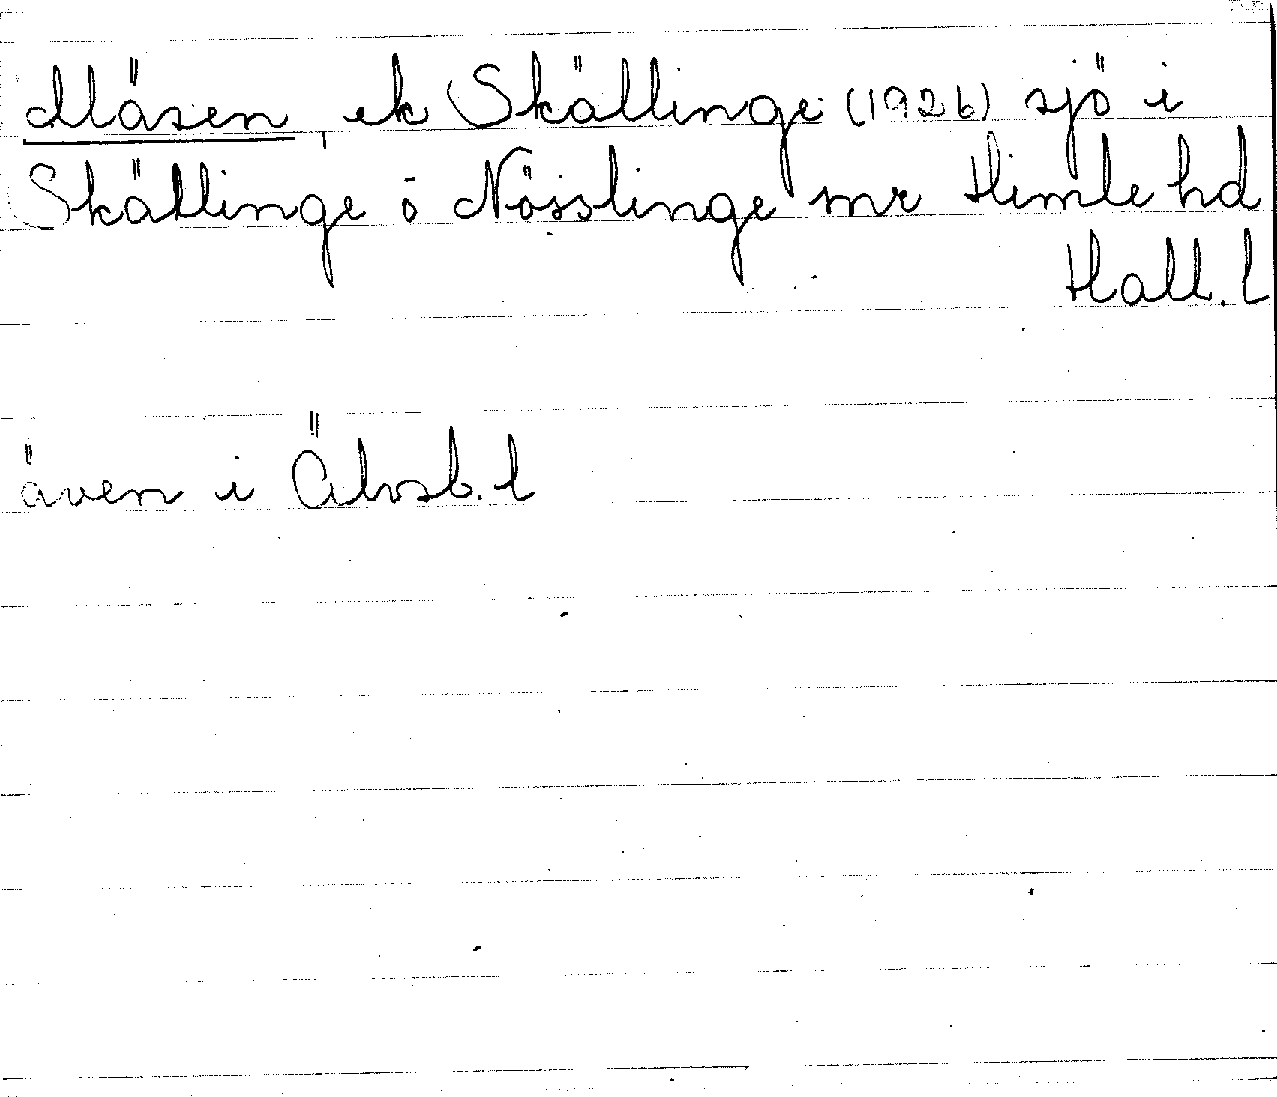 Mäsen, ek Skällinge (1926) sjö i
Skällinge o Nösslinge snr Himle hd
Hall. l
även i Älvsb. l